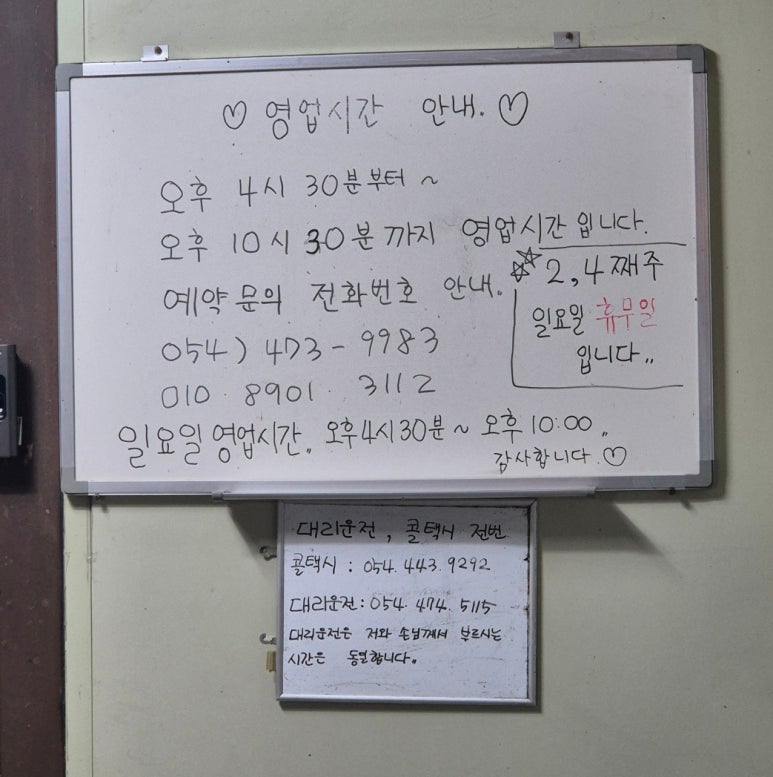 ♡ 영업시간 안내. ♡
오후 4시 30분부터 ~
오후 10시 30분까지 영업시간입니다.
예약문의 전화번호 안내.
054) 473-9983
010 8901 3112
☆☆ 2,4째주
일요일 휴무일
입니다..
일요일 영업시간.. 오후4시30분 ~ 오후 10:00..
감사합니다. ♡
대리운전, 콜택시 전번
콜택시 : 054. 443. 9292
대리운전 : 054. 474. 5115
대리운전은 저와 손님께서 부르시는
시간은 동일합니다..